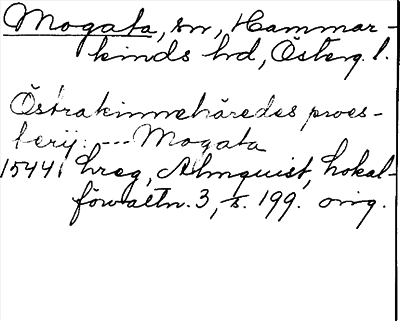 Mogata, sn, Hammar-
kinds hd, Österg. l.
Östrakinnehäredes proes-
terij: --- Mogata
1544 hreg, Almquist, Lokal-
förvaltn. 3, s. 199. orig.